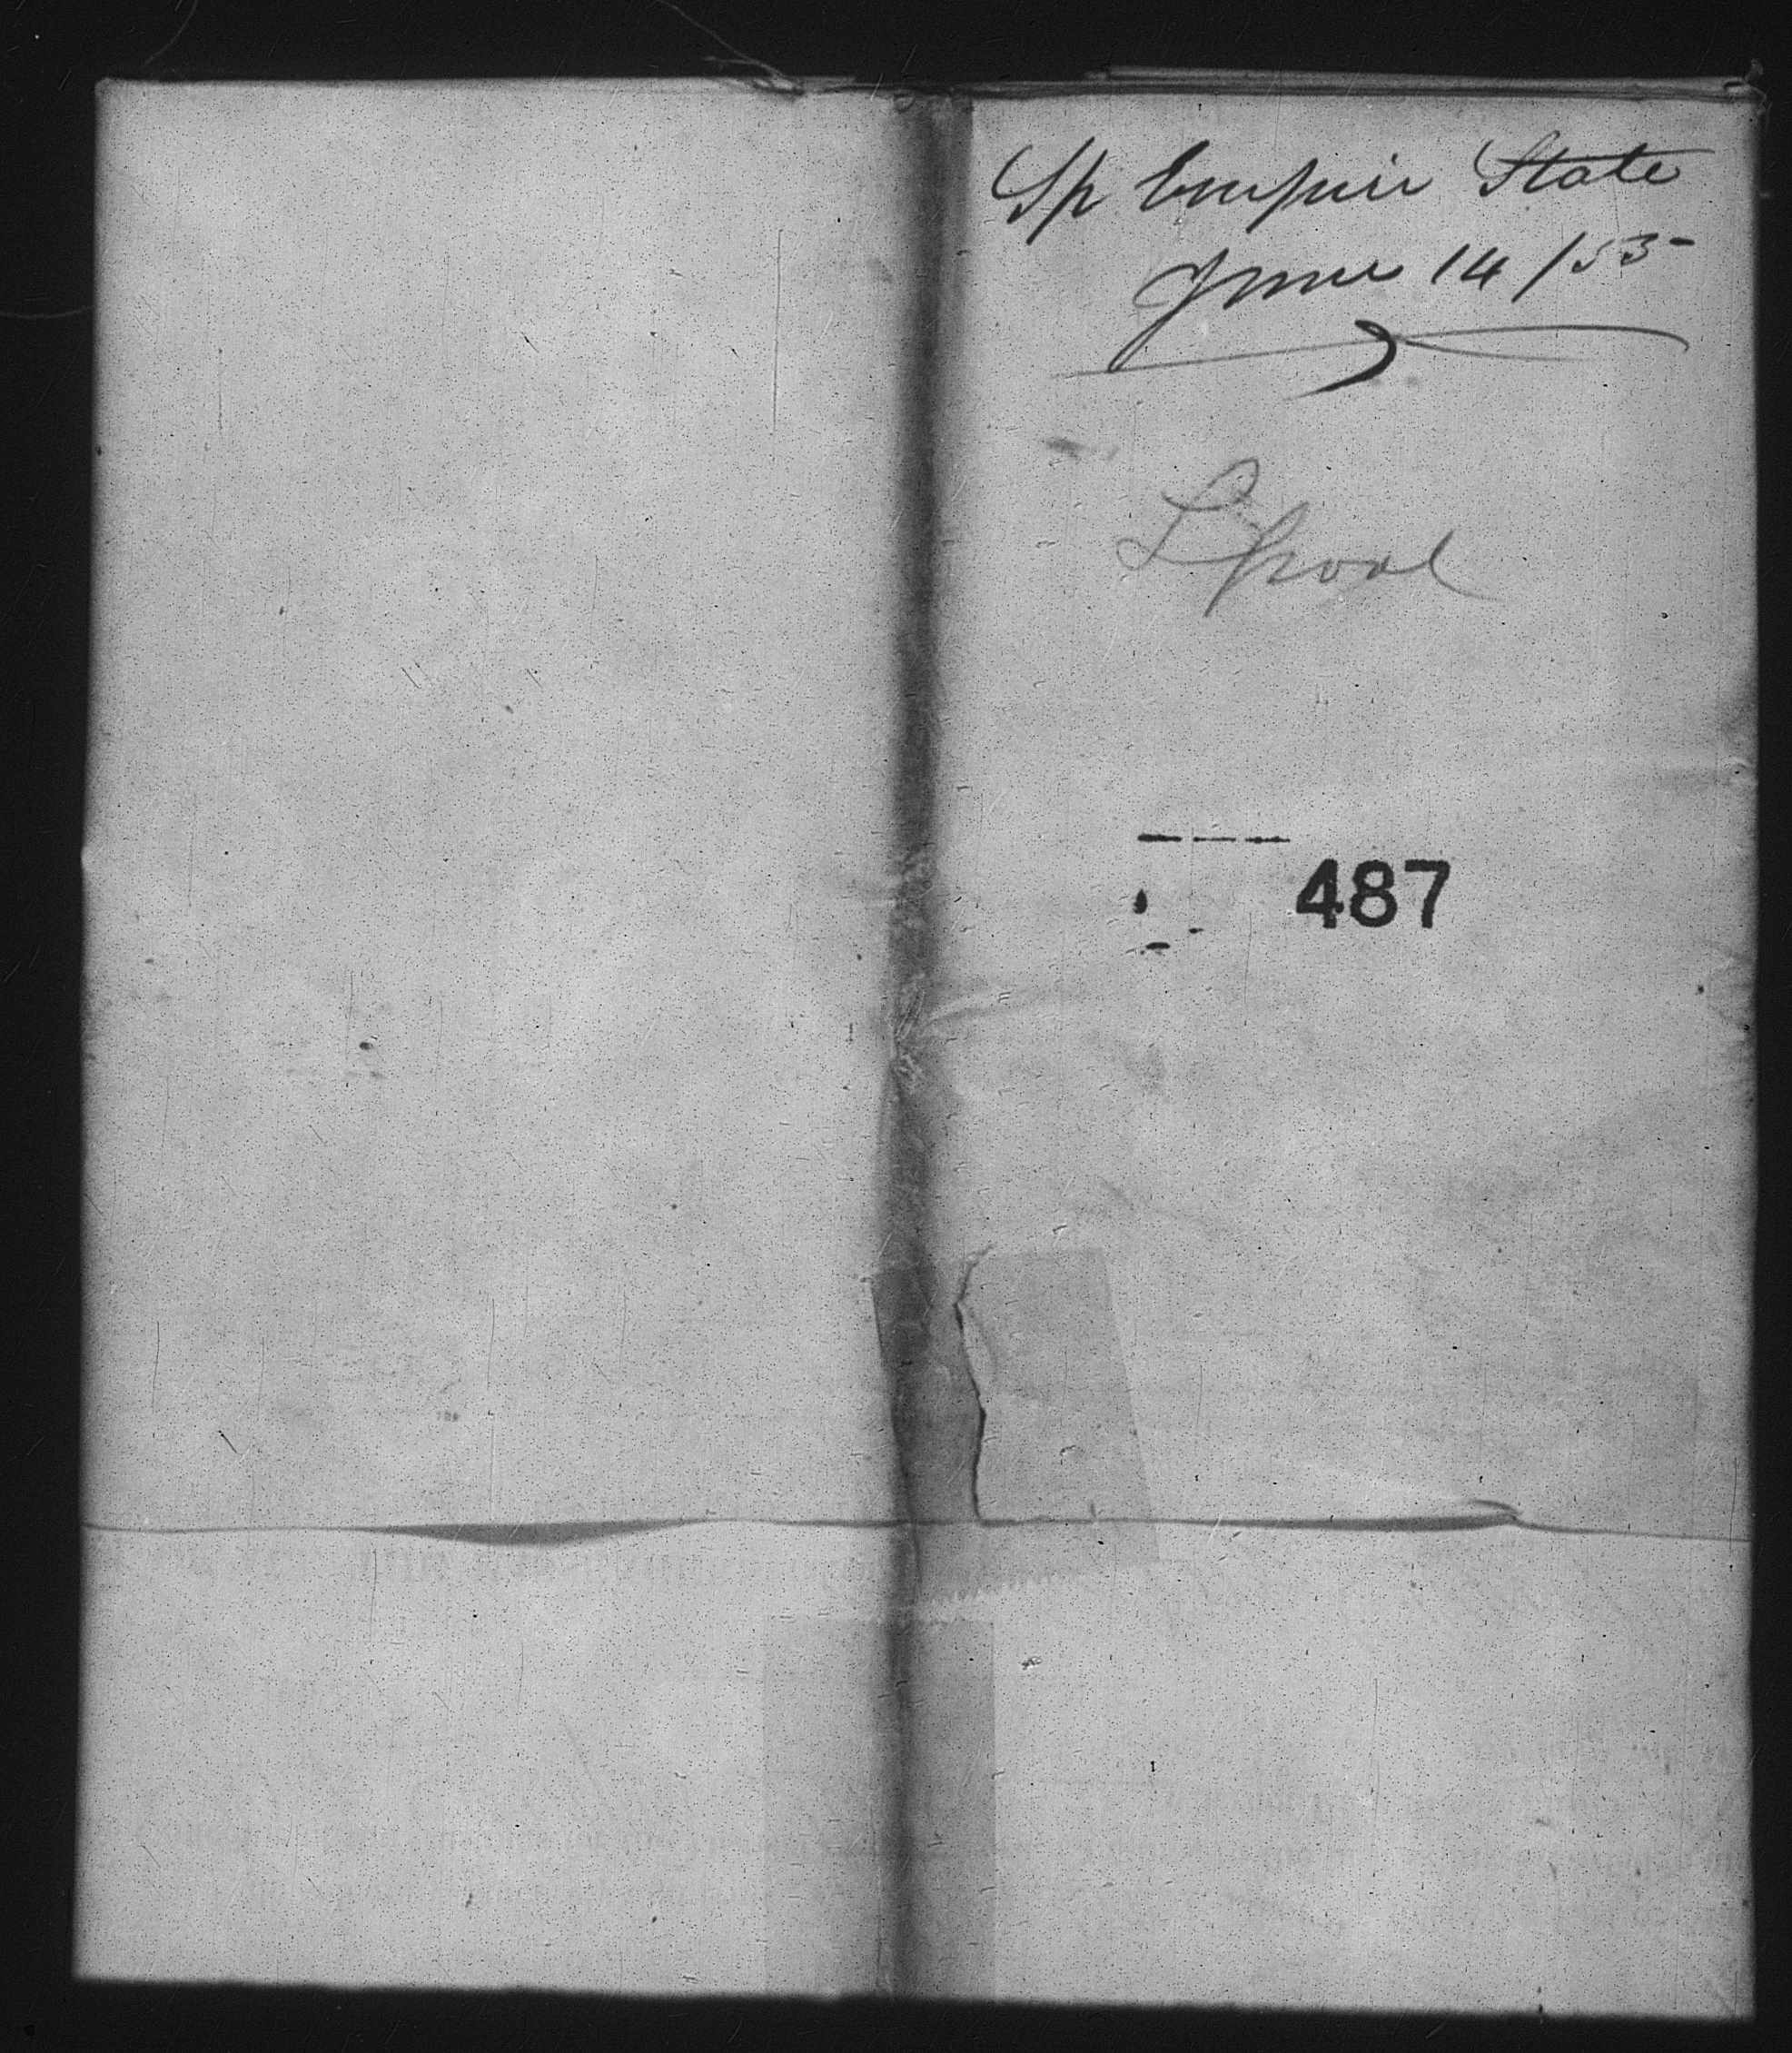 Sp Empire State
June 14/55
Lpool
487